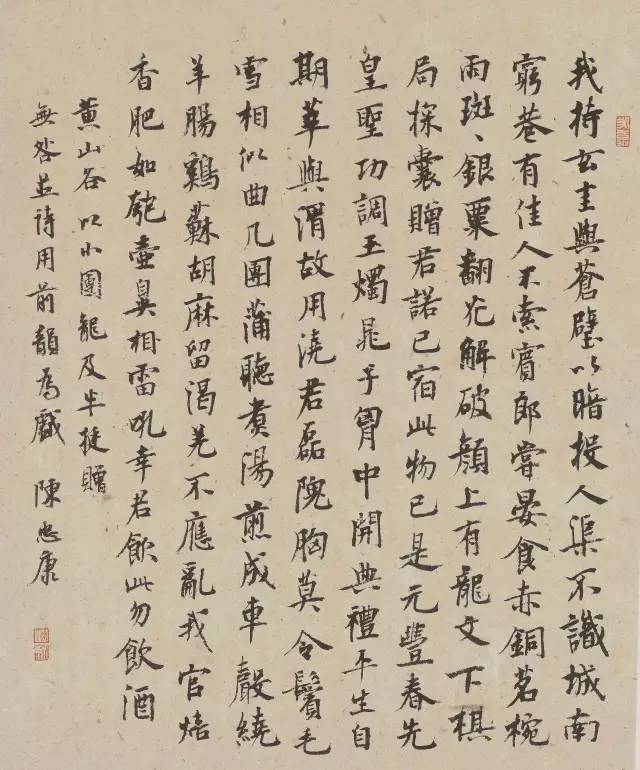 我持玄圭與蒼璧以暗投人渠不識城南
窮巷有佳人不索賓郎嘗晏食赤銅茗椀
雨斑〻銀粟翻花解破顏上有龍文下棋
局探囊贈君諾已宿此物已是元豐春先
皇聖功調玉燭晁子胷中開典禮平生自
期莘與渭故用澆君磊隗胸莫令鬢毛
雪相似曲几團蒲聽煑湯煎成車聲繞
羊腸鷄蘇胡麻留渴羌不應亂我官焙
香肥如瓠壺鼻相雷吼幸君飲此勿飲酒
黄山谷以小團龍及半挺贈
無咎並詩用前韻為戲 陳忠康